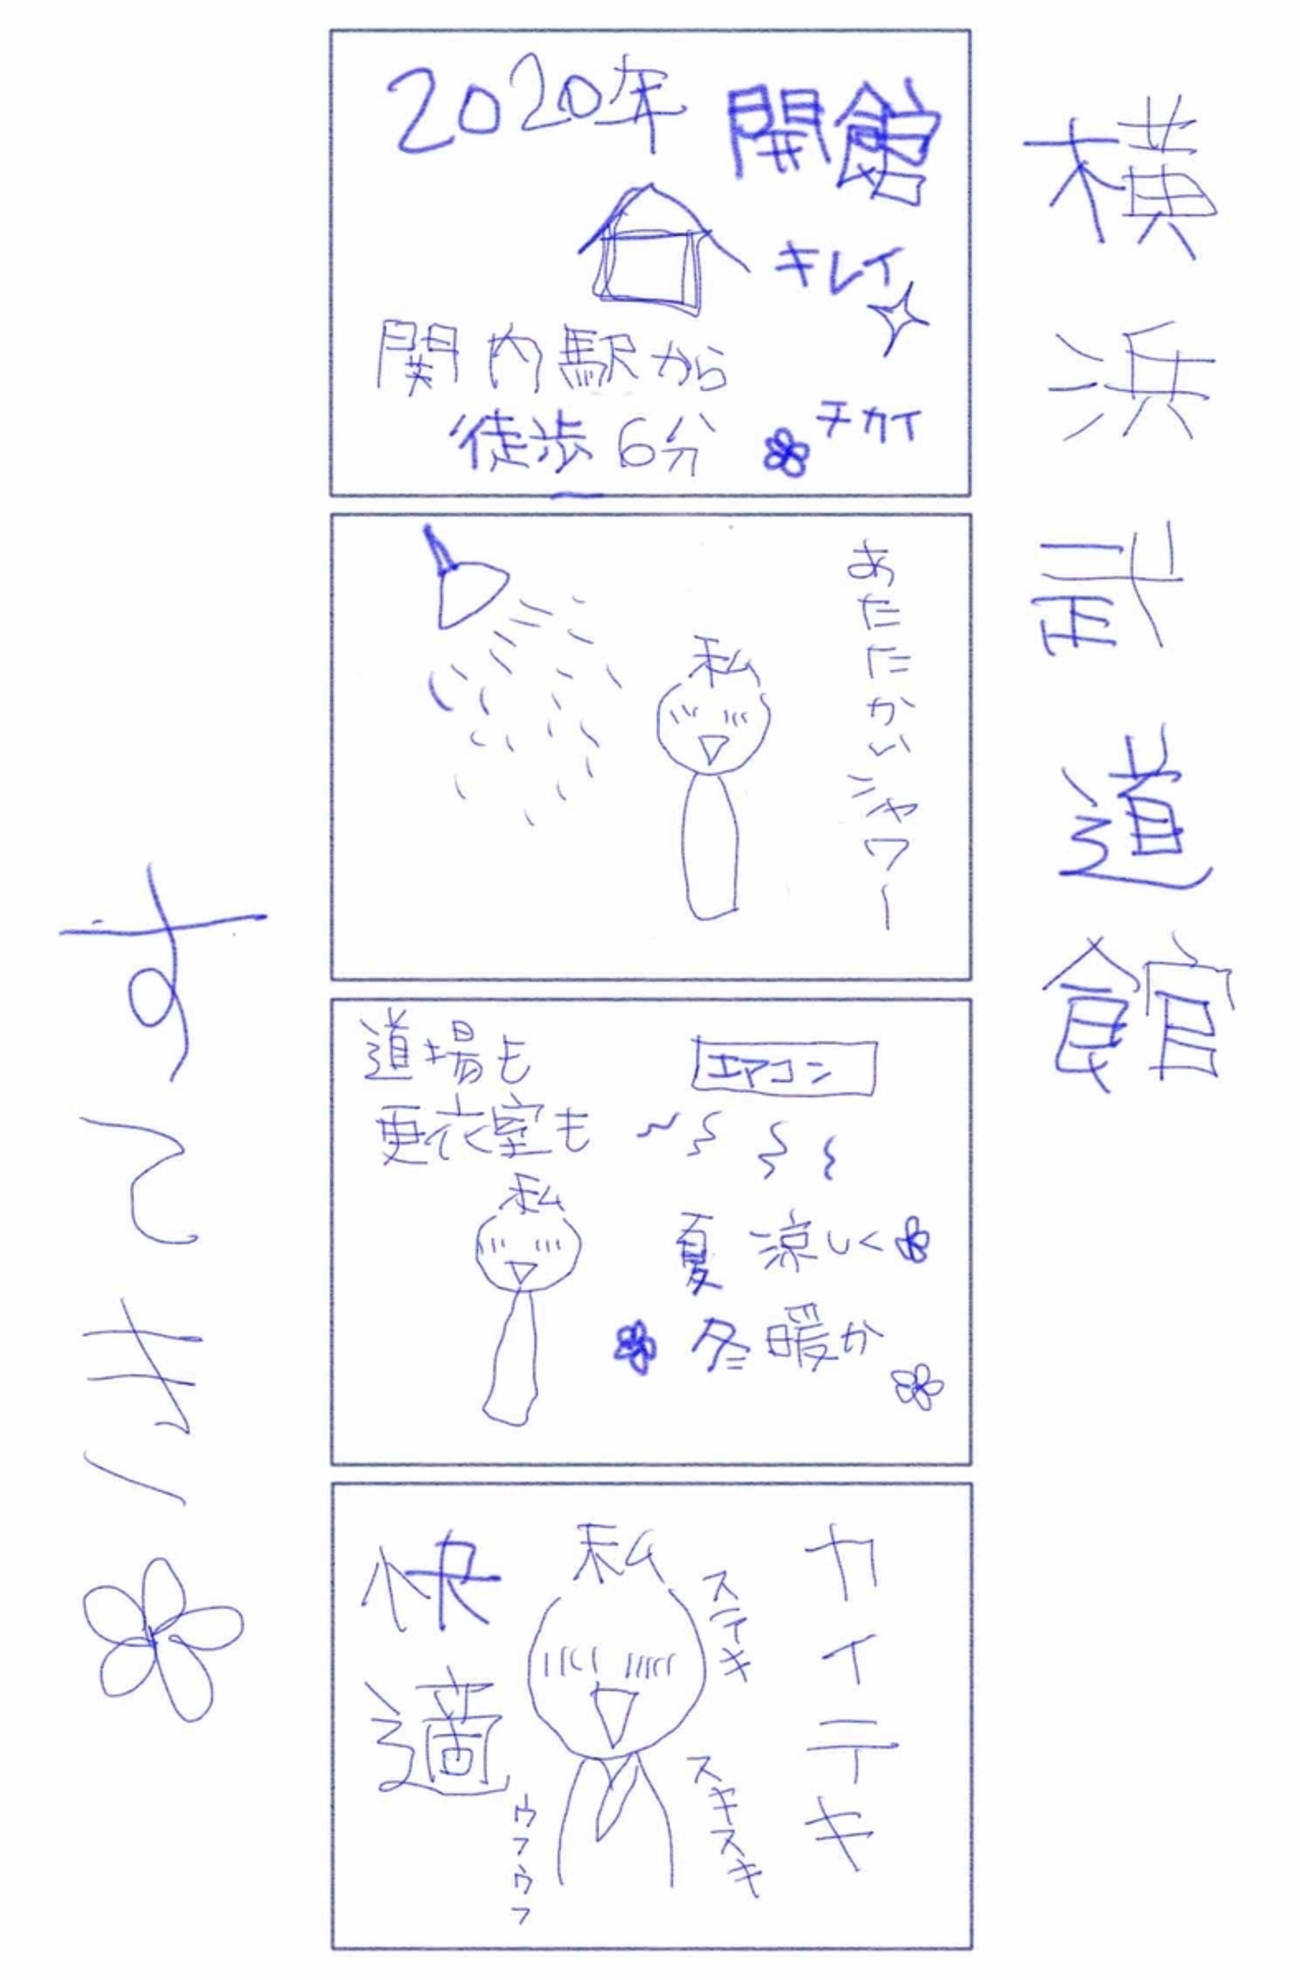 横浜武道館
2020年 開館
キレイ
関内駅から
徒歩6分
チカイ
あたたかいシャワー
私
道場も
更衣室も
エアコン
私
夏 涼しく
冬 暖か
カイテキ
ステキ
スキスキ
私
快適
ウフウフ